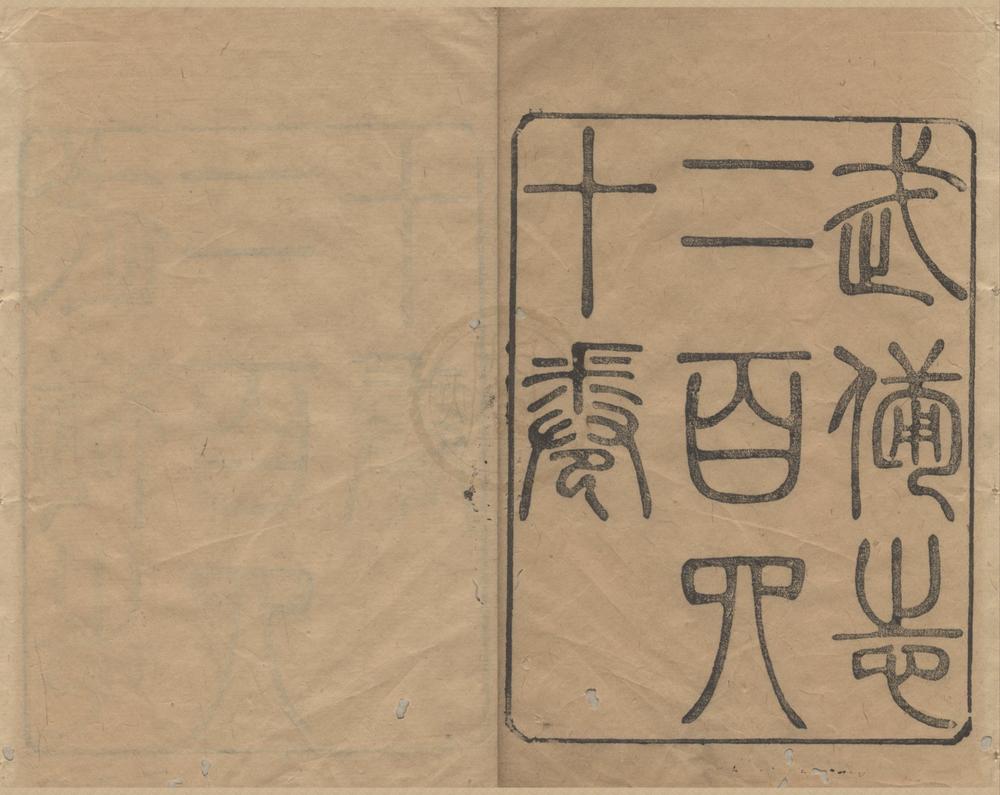 武備志
二百四
十卷